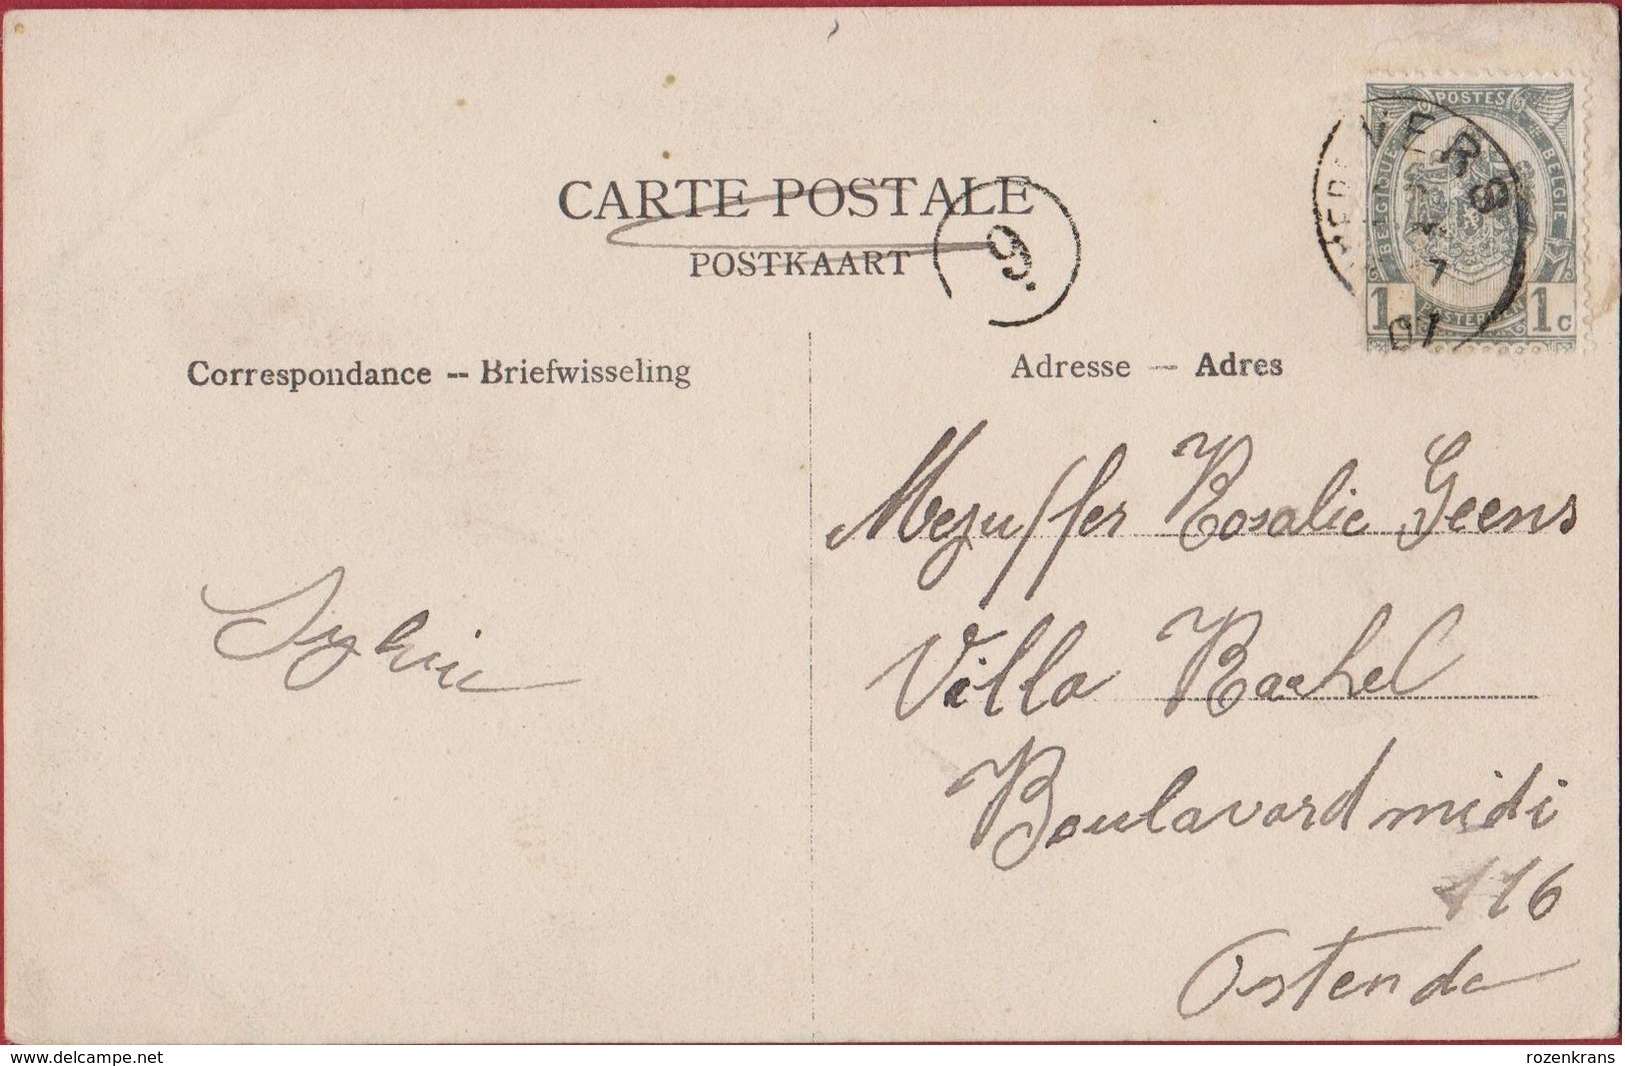 CARTE POSTALE
POSTKAART
9.
Correspondance -- Briefwisseling
Adresse — Adres
POSTES
BELGIQUE
BELGIE
1 1c
VERS
7
07
Mejuffer Rosalie Geens
Villa Rachel
Boulavard midi
116
Ostende
Sylvie
www.delcampe.net
rozenkrans